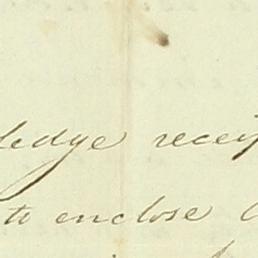 ledge recei
to enclose